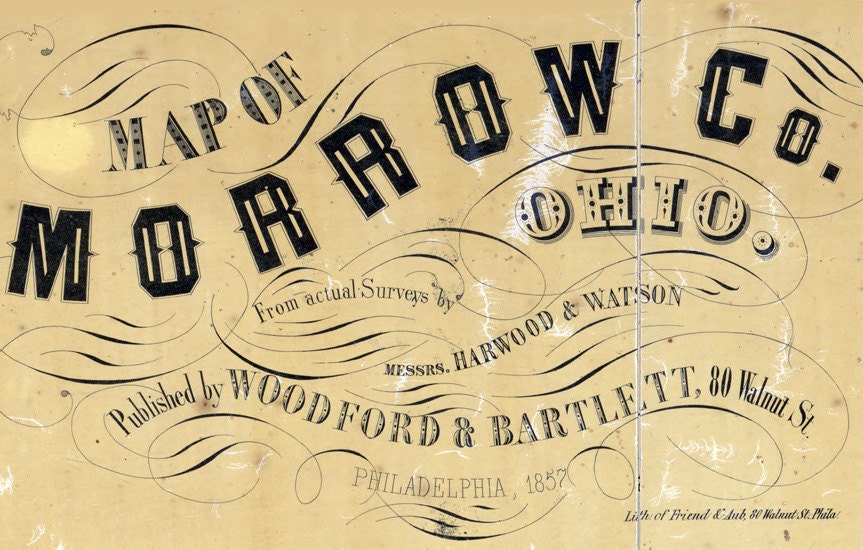 MAP OF
MORROW Co.
OHIO.
From actual Surveys by
MESSRS. HARWOOD & WATSON
Published by WOODFORD & BARTLETT, 80 Walnut St.
PHILADELPHIA, 1857
Lith. of Friend & Aub, 80 Walnut St. Phila.